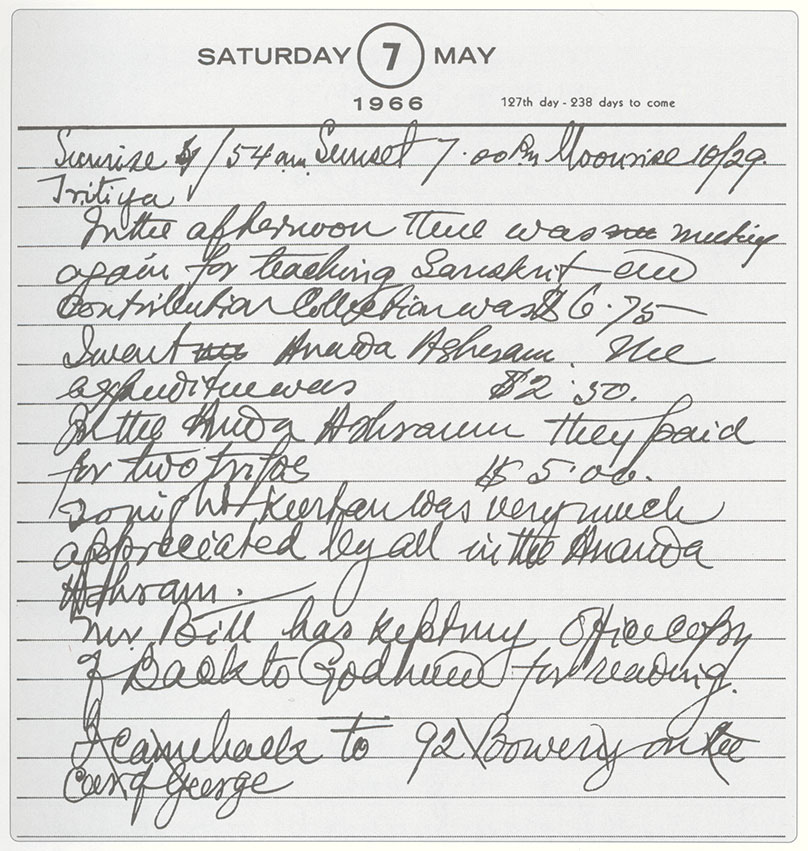 SATURDAY 7 MAY
1966 127th day - 238 days to come
Sunrise 4/54 am Sunset 7.00 Pm Moonrise 10/29.
Tritiya
In the afternoon there was meeting
again for teaching Sanskrit and
Contribution Collection was $ 6.75
I went Ananda Ashram. The
expenditure was $2.50.
In the Anda Ashram they paid
for two trips $ 5.00.
Tonight Kirtan was very much
appreciated by all in the Ananda
Ashram.
Mr. Bill has kept my office copy
of Back to Godhead for reading.
I came back to 92 Bowery on the
Car of George